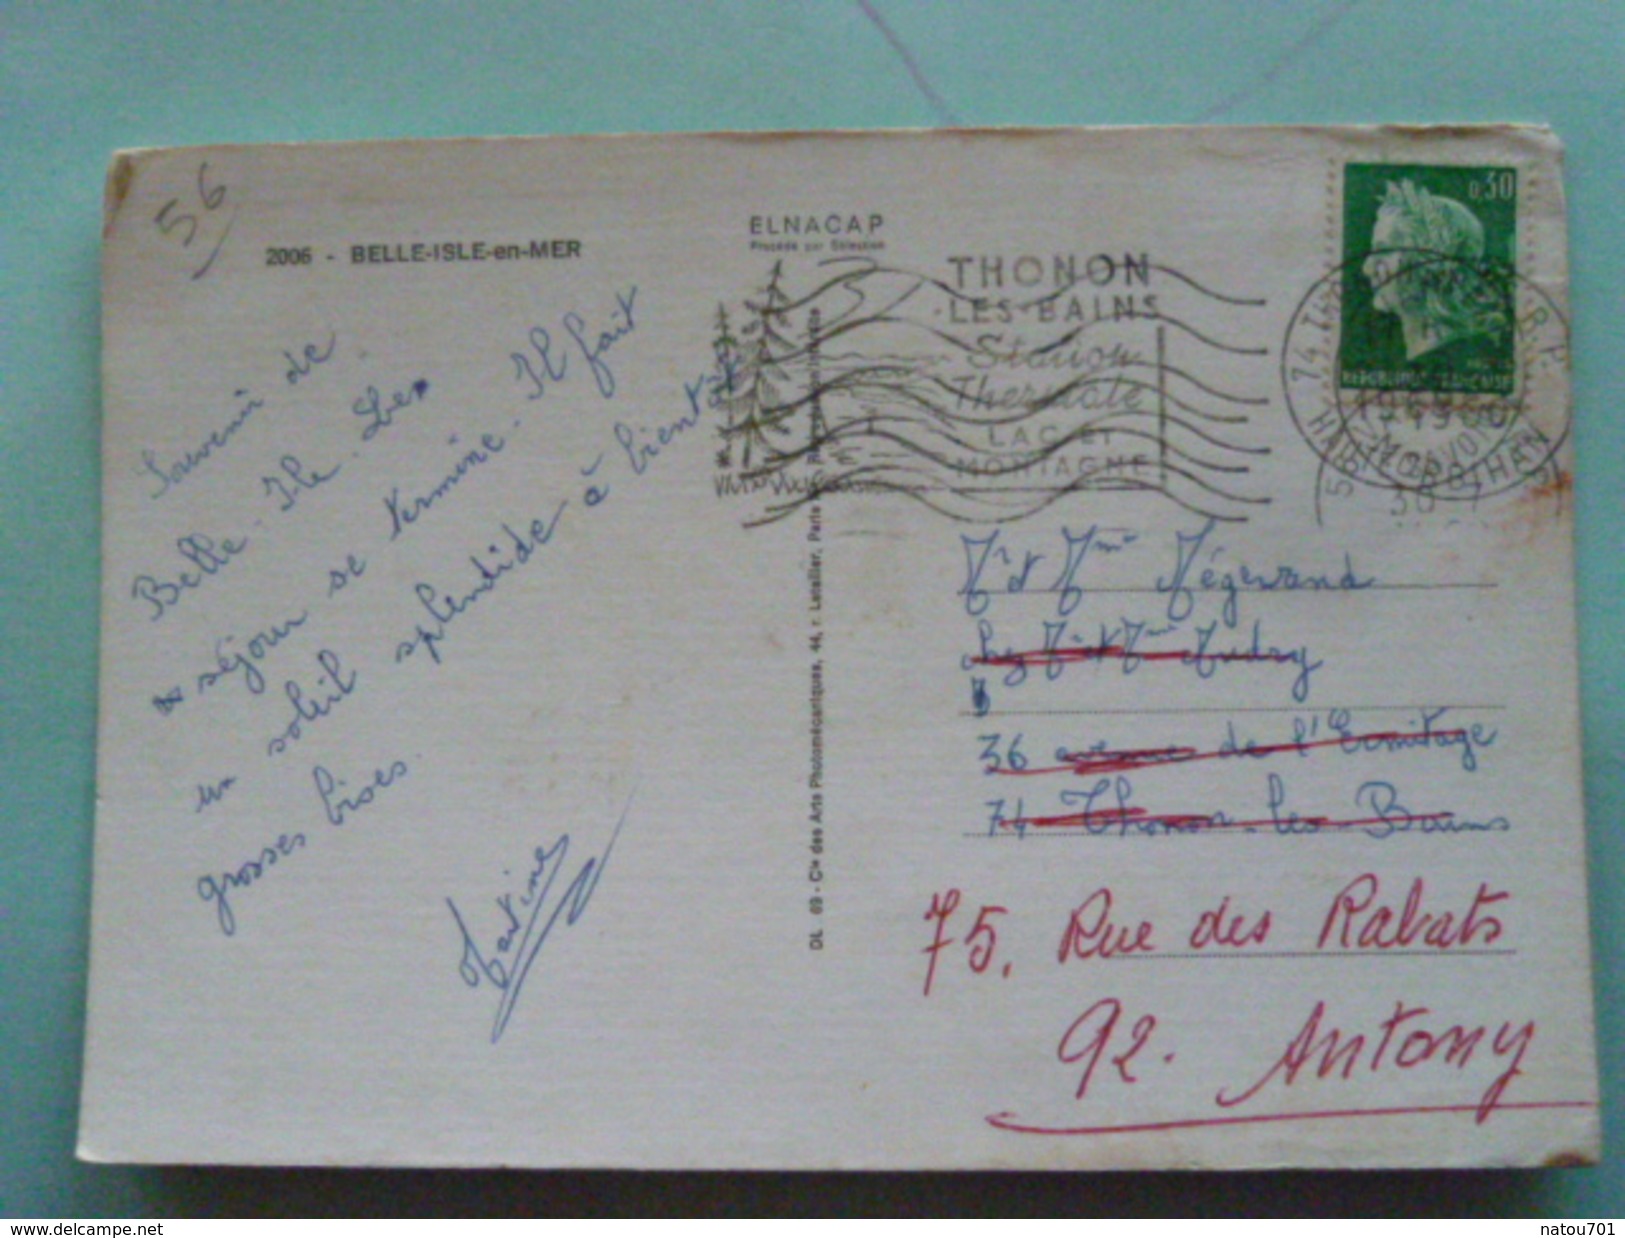 56
2006 - BELLE-ISLE-en-MER
ELNACAP
Procédé par Sélection
Souvenir de
Belle-Ile. Le
séjour se termine. Il fait
un soleil splendide à bientôt
grosses bises.
Martine
DL 69 - Cie des Arts Photomécaniques, 44, r. Letellier, Paris
THONON
LES-BAINS
Station
Thermale
LAC ET
MONTAGNE
0,30
MORBIHAN
30-7
Mr et Mme Mégevand
chez Mr et Mme Audry
36 avenue de l'Ermitage
74 Thonon-les-Bains
75, Rue des Rabats
92. Antony
http://www.delcampe.net
natou701